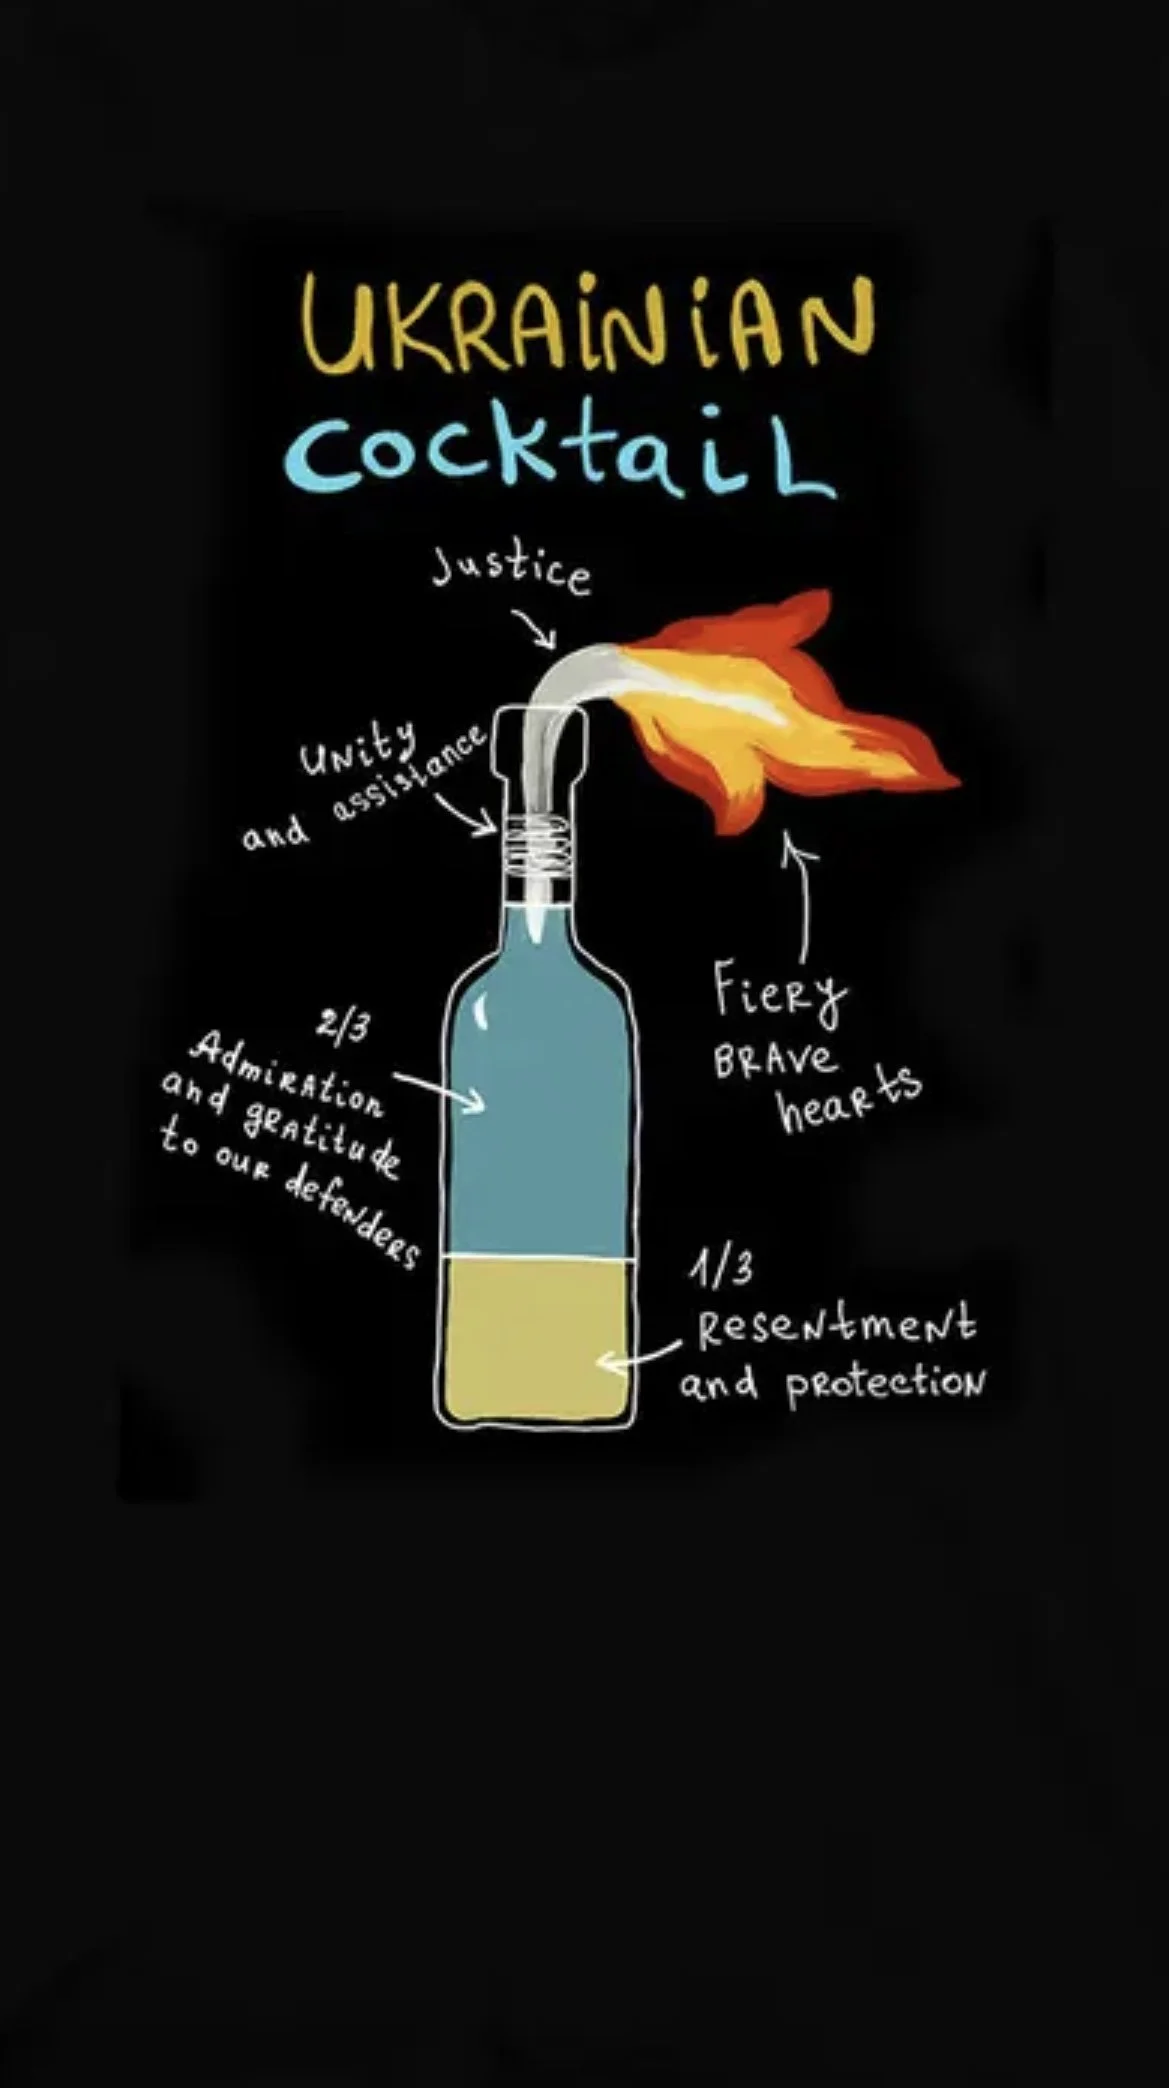 UKRAiNiAN
cocktaiL
Justice
UNity
and assistance
Fiery
BRAVe
heaRts
2/3
AdmiRAtion
and gRAtitude
to ouR defeNdeRs
1/3
ReseNtmeNt
and pRotectioN